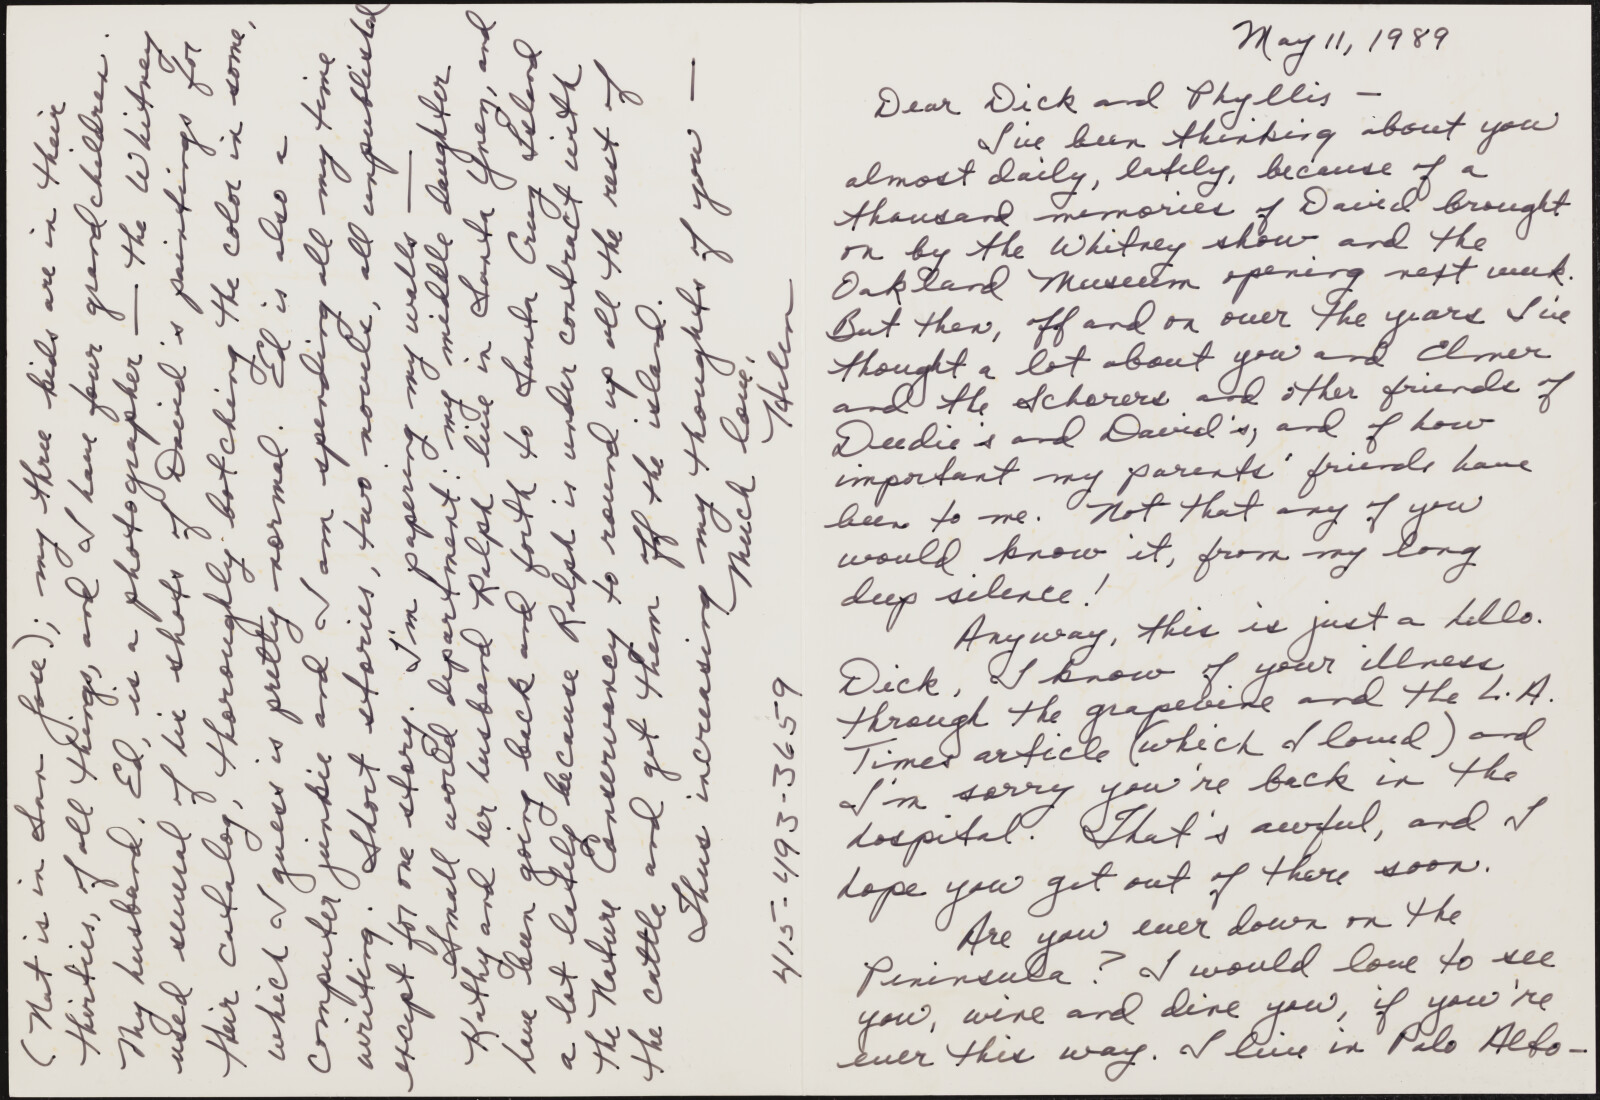 May 11, 1989
Dear Dick and Phyllis —
I've been thinking about you
almost daily, lately, because of a
thousand memories of David brought
on by the Whitney show and the
Oakland Museum opening next week.
But then, off and on over the years I've
thought a lot about you and Elmer
and the Schorers and other friends of
Deedie's and David's, and of how
important my parents' friends have
been to me. Not that any of you
would know it, from my long
deep silence!
Anyway, this is just a hello.
Dick, I know of your illness
through the grapevine and the L.A.
Times article (which I loved) and
I'm sorry you're back in the
hospital. That's awful, and I
hope you get out of there soon.
Are you ever down on the
Peninsula? I would love to see
you, wine and dine you, if you're
ever this way. I live in Palo Alto —
(Nat is in San Jose); my three kids are in their
thirties, of all things, and I have four grandchildren.
My husband, Ed, is a photographer — the Whitney
used several of his shots of David's paintings for
their catalog, thoroughly botching the color in some,
which I guess is pretty normal. Ed is also a
computer junkie and I am spending all my time
writing. Short stories, two novels, all unpublished
except for one story. I'm papering my walls —
Small world department: my middle daughter
Kathy and her husband Ralph live in Santa Ynez, and
have been going back and forth to Santa Cruz Island
a lot lately because Ralph is under contract with
the Nature Conservancy to round up all the rest of
the cattle and get them off the island.
Thus increasing my thoughts of you —
Much love,
Helen
415-493-3659